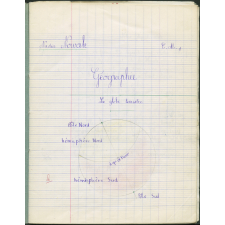 Nowak
Géographie
Le globe terrestre
Pôle Nord
hémisphère Nord
hémisphère Sud
Pôle Sud